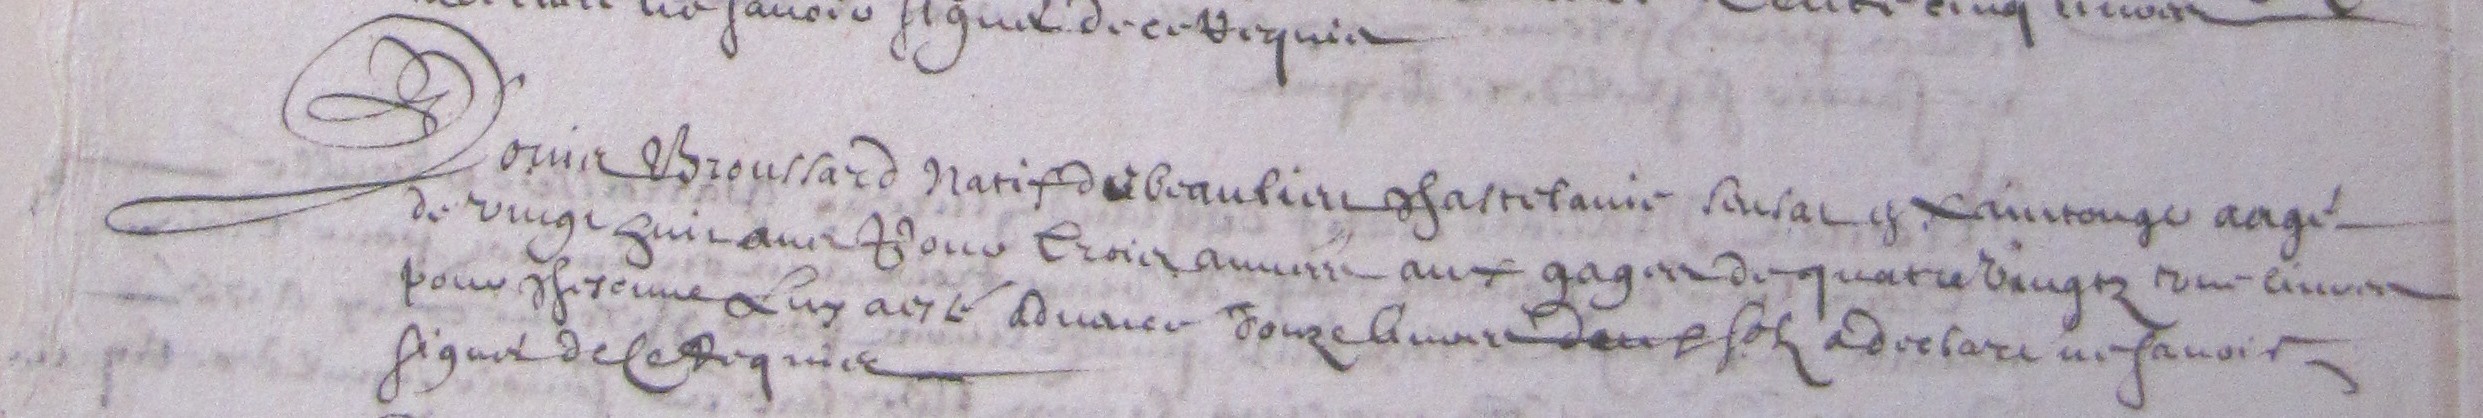 ne savoir signer de ce Requis
cinq livres
Broussard Natif de beaulieu Chastelanie en Xainctonge aagé
de vingt huit ans Pour trois années aux gages de quatre vingtz une livres
pour chacune Luy a esté advancé douze livres solz a declaré ne savoir
signer de ce Requis